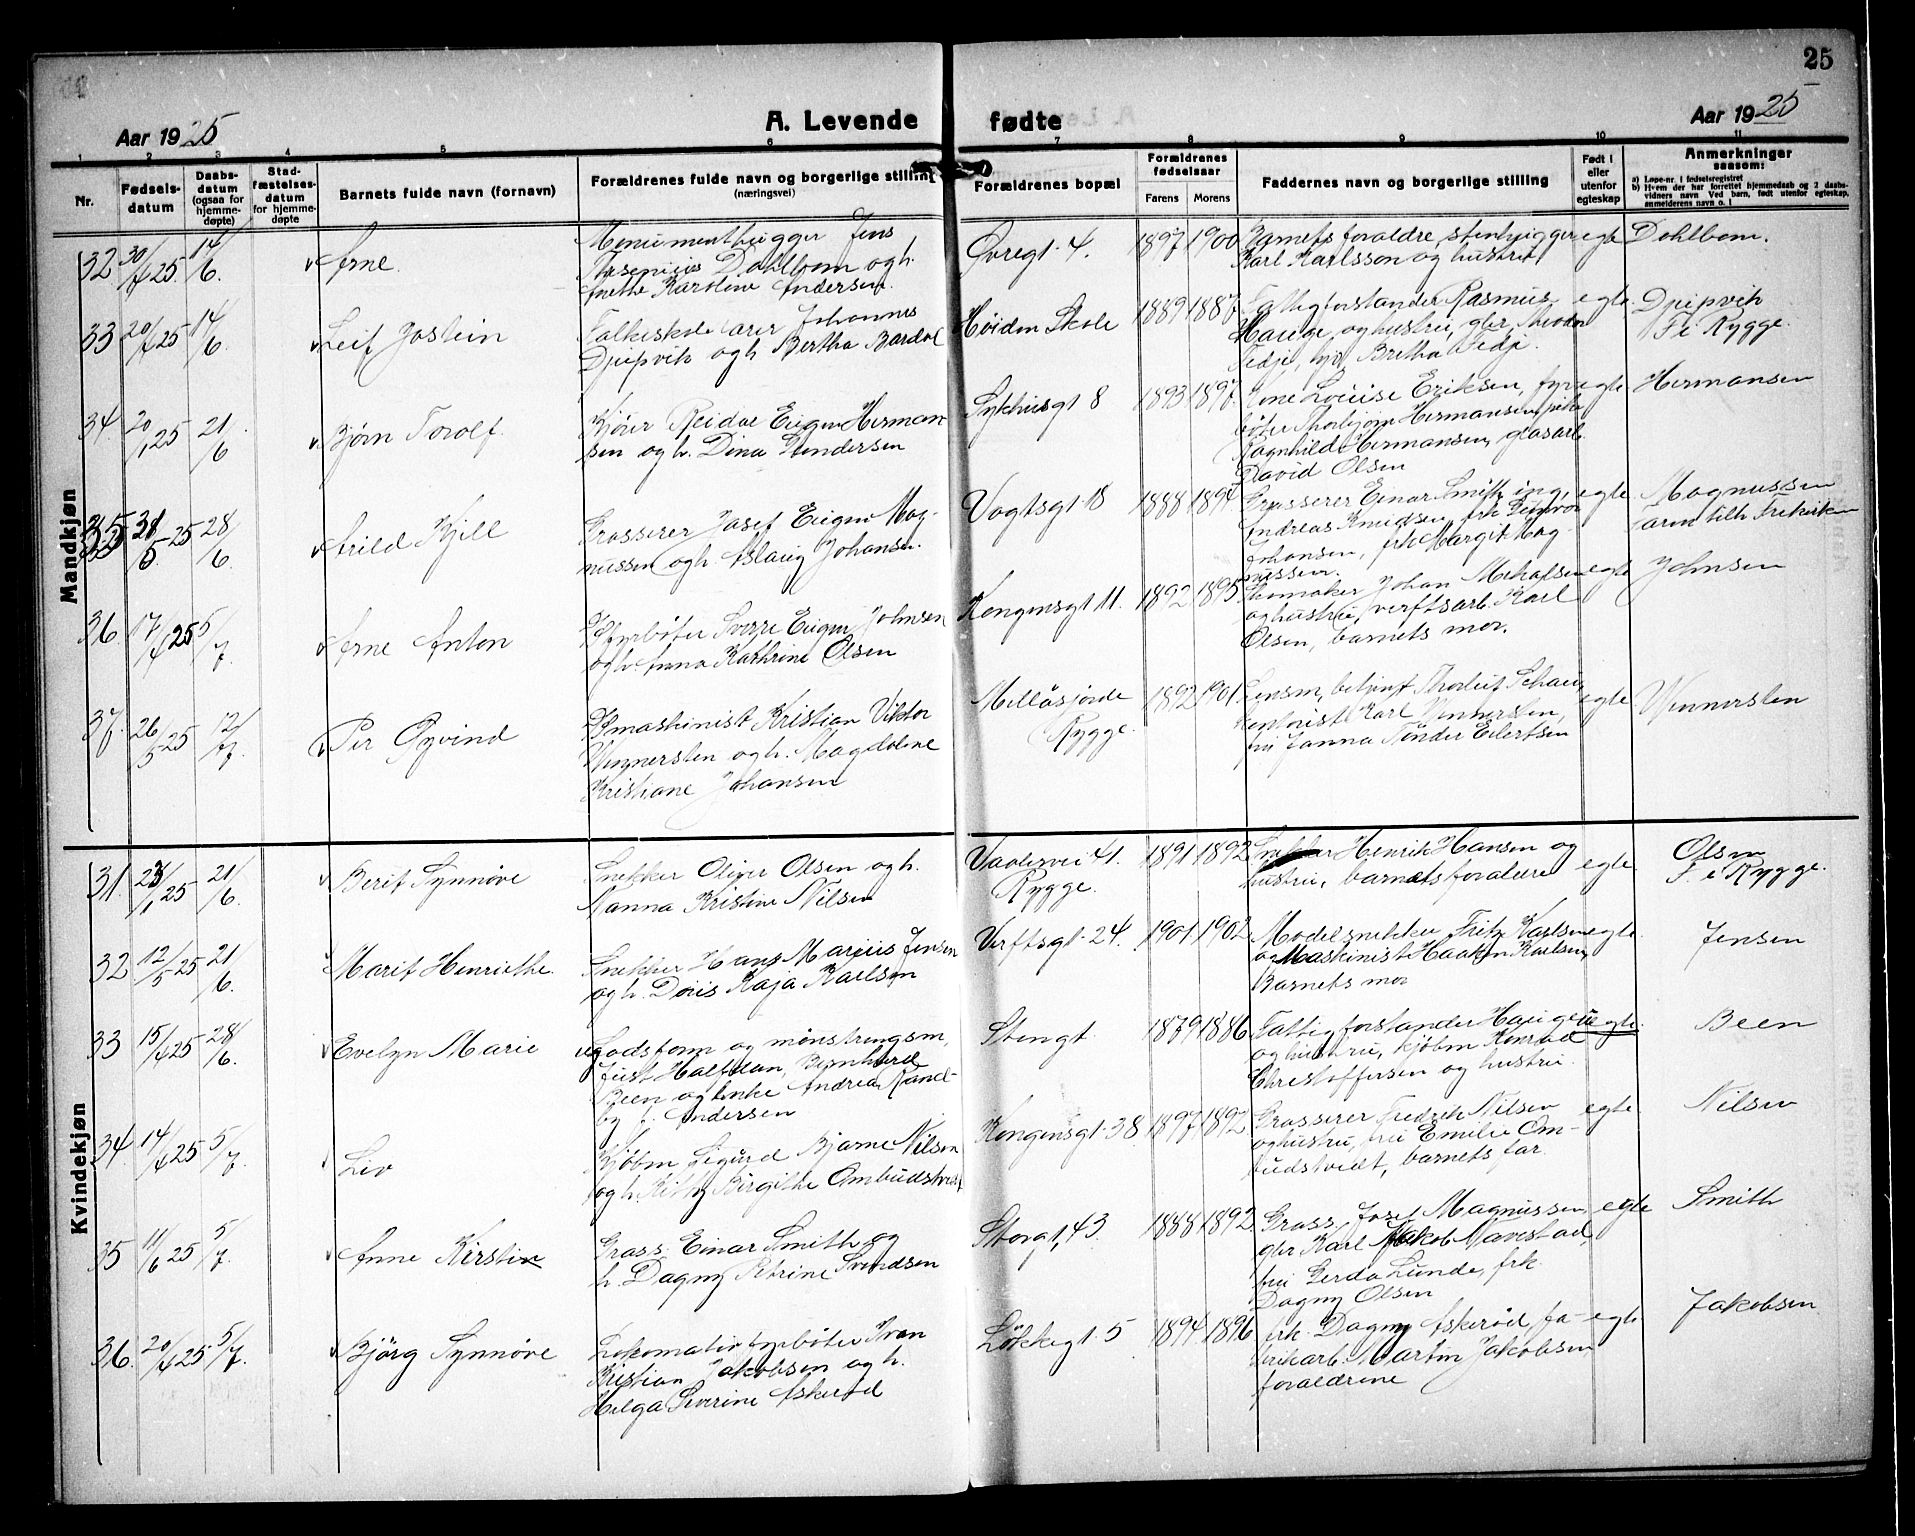 25
Aar 1925
A. Levende fødte
Aar 1925
1 2 3 4 5 6 7 8 9 10 11
Nr.
Fødsels-
datum
Daabs-
datum
(ogsaa for
hjemme-
døpte)
Stad-
fæstelses-
datum
for hjemme-
døpte
Barnets fulde navn (fornavn)
Forældrenes fulde navn og borgerlige stilling
(næringsvei)
Forældrenes bopæl
Forældrenes
fødselsaar
Farens Morens
Faddernes navn og borgerlige stilling
Født i
eller
utenfor
egteskap
Anmerkninger
saasom:
a) Løpe-nr. i fødselsregistret
b) Hvem der har forrettet hjemmedaab og 2 daabs-
vidners navn Ved barn, født utenfor egteskap,
anmelderens navn o. l
Mandkjøn
32 30/4 25. 14/6. Arne.
Monumenthugger Jens
Arsenius Dahlbom og h.
Anette Karoline Andersen.
Øvregt. 4. 1897 1900
Barnets foraldre, stenhugger
Karl Karlsson og hustru
egte Dahlbom.
33 20/4 25 14/6. Leif Jostein
Folkeskolelærer Johannes
Djupvik og h Bertha Bardal
Høiden Skole 1889 1887
Fattigforstander Rasmus
Hauge, og hustru, gbr.
Tedje, Bretha Tedje.
egte. Djupvik
F. i Rygge.
34. 20/1 25 21/6 Bjørn Torolf
Kjører Reidar Eugen Herman-
sen og h. Dina Hendersen
Sykhusgt 8 1893 1897.
Louise Eriksen, fyr-
bøter Thorbjørn Hermansen, pike
Ragnhild Hermansen, glasarb.
David Olsen
egte Hermansen
35 31/5. 25 28/6. Arild Kjell
Grosserer Josef Eugen Mag-
nussen og h. Aslaug Johansen.
Vogtsgt. 18 1888 1894
Grosserer Einar Smith, ing.
Andreas Knudsen, frk
Johansen, frk Margit Mag-
nussen.
egte. Magnussen
36 17/4 25 5/7. Arne Anton
Fyrbøter Sverre Eugen Johnsen
og h. Anna Kathrine Olsen
Kongensgt. 11. 1892 1895
Skomaker Johan
og hustru, verftsarb. Karl
Olsen, barnets mor.
egte Johnsen
37. 26/5 25 12/7. Per Øyvind
maskinist Kristian Viktor
Wennersten og h. Magdalene
Kristiane Johansen
Melløsjorde
Rygge. 1892 1901
Lensm. betjent Thorleif Schau,
kontorist Karl Wennersten,
fru Janna Tønder Eilertsen
egte Wennersten
Kvindekjøn
31. 23/1 25 21/6. Berit Synnøve
Snekker Oliver Olsen og h.
Nanna Kristine Nilsen
Vaalervei 41.
Rygge. 1891 1892
Snekker Henrik Hansen og
hustru, barnets foraldre
egte Olsen
F. i Rygge.
32 12/5 25 21/6. Marit Henriette.
Snekker Hans Marius Jensen
og h. Doris Kaja Karlsen
Verftsgt. 24. 1901 1902
Modelsnekker Fritz Karlsen
og Maskinist Haakon Karlsen,
Barnets mor
egte. Jensen
33 15/4 25 28/6. Evelyn Marie
Godsform og mønstringsm,
Just Halfdan, Bernhard
Been og enke Andrea Rand-
by f. Andersen
Stengt. 1879 1886
Fattigforstander Hauge
og hustru, kjøbm Konrad
Christoffersen og hustru.
uegte. Been
34. 14/4 25 5/7. Liv
Kjøbm, Sigurd Bjarne Nilsen
og h. Kitty Birgitte Ombudstvedt
Kongensgt. 38 1897 1892
Grosserer Fredrik Nilsen
og hustru, fru Emilie Om-
budstvedt, barnets far.
egte. Nilsen
35 11/6 25 5/7. Anne Kirstin
Gross. Einar Smith og
h. Dagny Petrine Svendsen
Storgt, 43 1888 1892
Gross, Josef Magnussen,
gbr Karl Jakob Navestad,
fru Gerda Lunde, frk.
Dagny Olsen
egte Smith
36. 20/4 25 5/7. Bjørg Synnøve
Lokomotivfyrbøter Ivan
Kristian Jakobsen og h.
Helga Severine Askerød
Løkkegt. 5 1894 1896
frk. Dagny Askerød fa-
brikarb. Martin Jakobsen,
foraldrene
egte Jakobsen